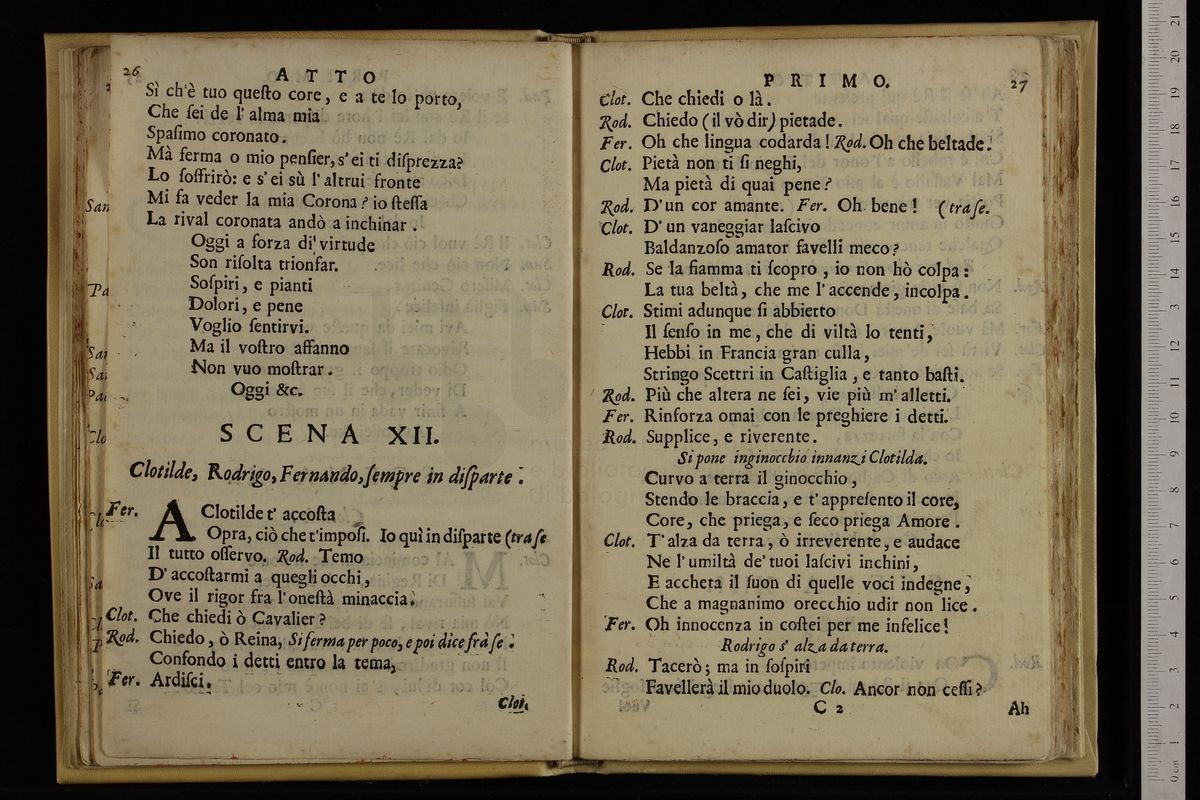 26
ATTO
Sì ch'è tuo queſto core, e a te lo porto,
Che ſei de l'alma mia
Spaſimo coronato.
Mà ferma o mio penſier, s'ei ti diſprezza?
Lo ſoffrirò: e s'ei sù l'altrui fronte
Mi fa veder la mia Corona? io ſteſſa
La rival coronata andò a inchinar.
Oggi a forza di virtude
Son riſolta trionfar.
Soſpiri, e pianti
Dolori, e pene
Voglio ſentirvi.
Ma il voſtro affanno
Non vuo moſtrar.
Oggi &c.
SCENA XII.
Clotilde, Rodrigo, Fernando, ſempre in diſparte.
Fer. A Clotilde t'accoſta
Opra, ciò che t'impoſi. Io quì in diſparte (tra ſe
Il tutto oſſervo. Rod. Temo
D'accoſtarmi a quegli occhi,
Ove il rigor fra l'oneſtà minaccia.
Clot. Che chiedi ò Cavalier?
Rod. Chiedo, ò Reina, Si ferma per poco, e poi dice frà ſe.
Confondo i detti entro la tema,
Fer. Ardiſci.
Clot.
PRIMO.
27
Clot. Che chiedi o là.
Rod. Chiedo (il vò dir) pietade.
Fer. Oh che lingua codarda! Rod. Oh che beltade.
Clot. Pietà non ti ſi neghi,
Ma pietà di quai pene?
Rod. D'un cor amante. Fer. Oh bene! (tra ſe.
Clot. D'un vaneggiar laſcivo
Baldanzoſo amator favelli meco?
Rod. Se la fiamma ti ſcopro, io non hò colpa:
La tua beltà, che me l'accende, incolpa.
Clot. Stimi adunque ſi abbietto
Il ſenſo in me, che di viltà lo tenti,
Hebbi in Francia gran culla,
Stringo Scettri in Caſtiglia, e tanto baſti.
Rod. Più che altera ne ſei, vie più m'alletti.
Fer. Rinforza omai con le preghiere i detti.
Rod. Supplice, e riverente.
Si pone inginocchio innanzi Clotilda.
Curvo a terra il ginocchio,
Stendo le braccia, e t'appreſento il core,
Core, che priega, e ſeco priega Amore.
Clot. T'alza da terra, ò irreverente, e audace
Ne l'umiltà de' tuoi laſcivi inchini,
E accheta il ſuon di quelle voci indegne,
Che a magnanimo orecchio udir non lice.
Fer. Oh innocenza in coſtei per me infelice!
Rodrigo s'alza da terra.
Rod. Tacerò; ma in ſoſpiri
Favellerà il mio duolo. Clo. Ancor non ceſſi?
C 2
Ah